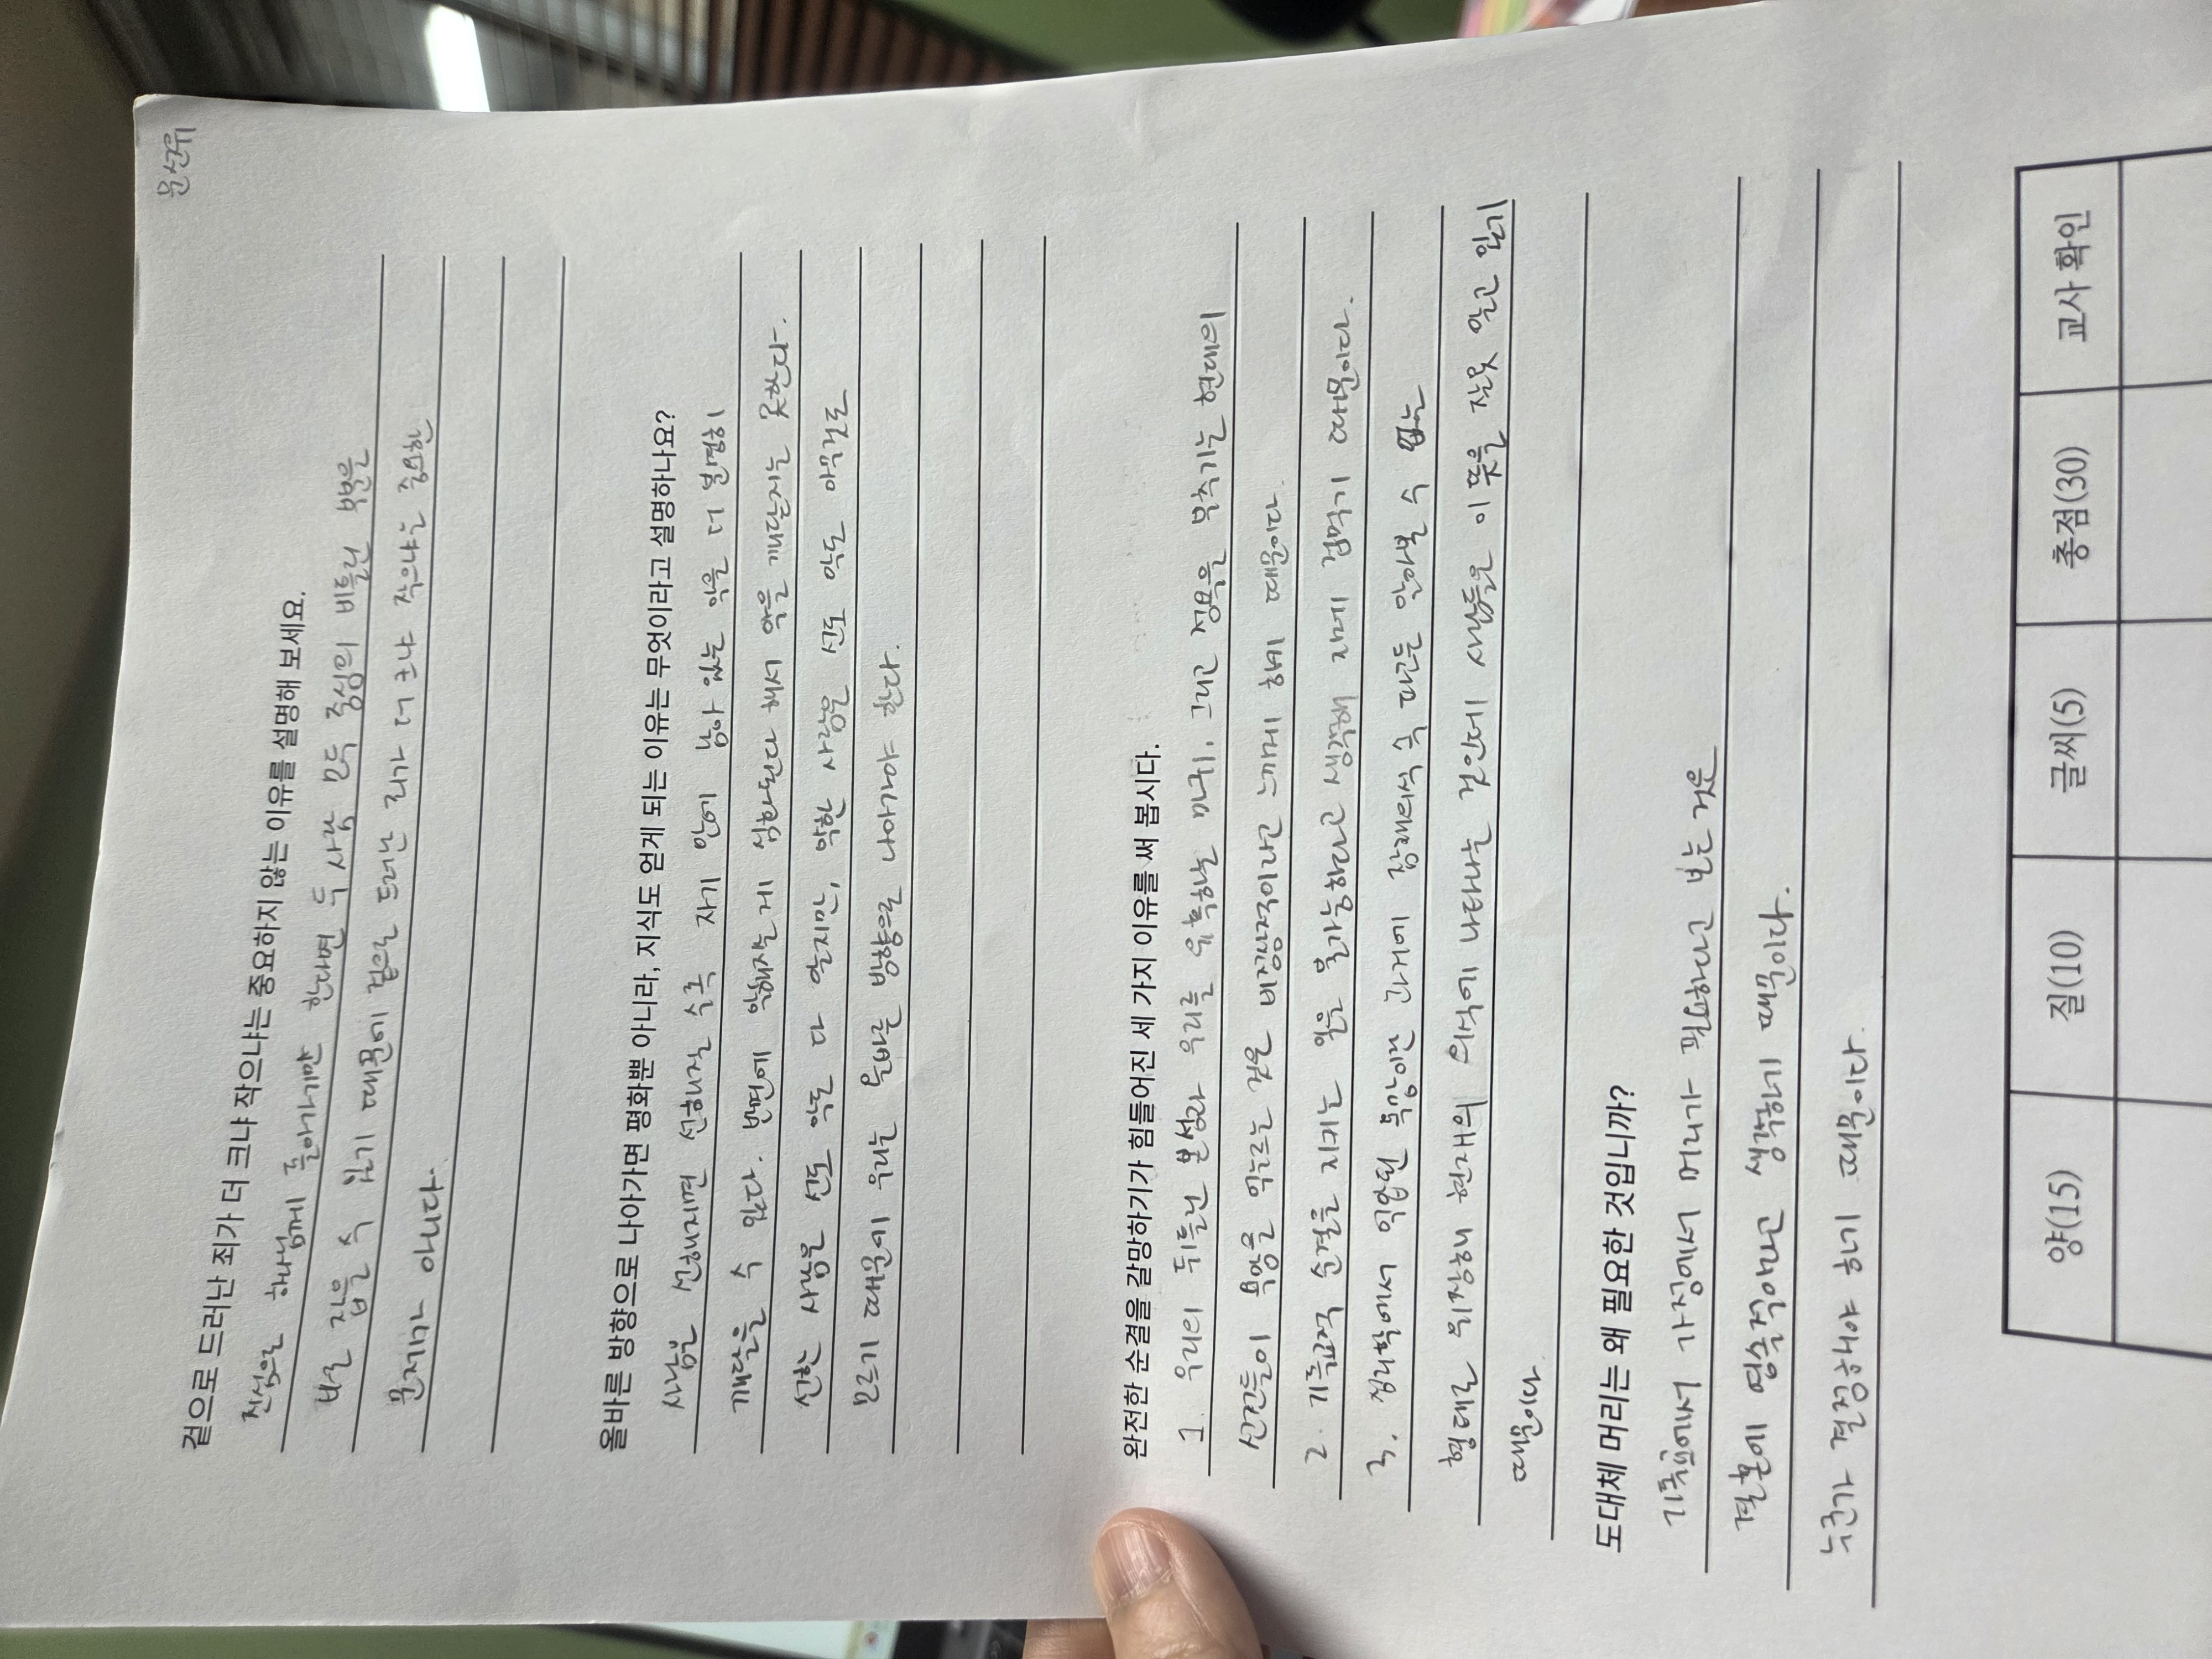 윤선유
겉으로 드러난 죄가 더 크냐 작으냐는 중요하지 않는 이유를 설명해 보세요.
진심으로 하나님께 돌아가기만 한다면 두 사람 모두 중심의 비틀린 부분을
바로 잡을 수 있기 때문에 겉으로 드러난 죄가 더 크냐 작으냐는 중요한
문제가 아니다.
올바른 방향으로 나아가면 평화뿐 아니라, 지식도 얻게 되는 이유는 무엇이라고 설명하나요?
사람은 선해지면 선해질 수록 자기 안에 남아 있는 악을 더 분명히
깨달을 수 있다. 반면에 악해지는 게 심화된다 해서 악을 깨달지는 못한다.
선한 사람은 선도 악도 다 알지만, 악한 사람은 선도 악도 아무것도
모르기 때문에 우리는 올바른 방향으로 나아가야 한다.
완전한 순결을 갈망하기가 힘들어진 세 가지 이유를 써 봅시다.
1. 우리의 뒤틀린 본성과 우리를 유혹하는 마귀, 그리고 정욕을 부추기는 현대의
선전들이 욕망을 억누르는 것은 비정상적이라고 느끼게 해비 때문이다.
2. 기독교적 순결을 지키는 일은 불가능하다고 생각해 지레 겁먹기 때문이다.
3. 심리학에서 억압된 욕망이란 과거에 잠재의식 속 다른 알아볼 수 없는
형태로 위장해 현재의 의식에 나타나는 것인데 사람들은 이 뜻을 잘못 알고 있기
때문이다.
도대체 머리는 왜 필요한 것입니까?
기독교에서 가정에서 머리가 필요하다고 보는 것은
결혼이 영속적이라고 생각하기 때문이다.
누군가 결정해야 하기 때문이다.
양(15) 질(10) 글씨(5) 총점(30) 교사 확인